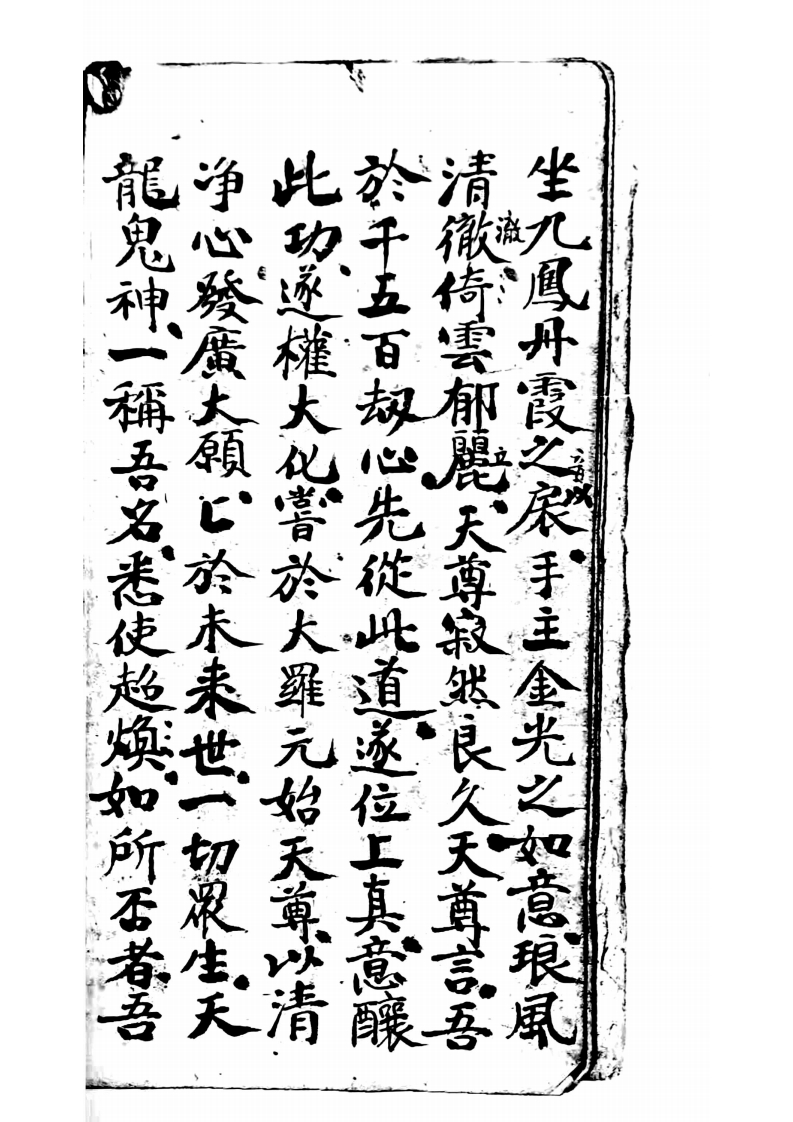 坐九鳳丹霞之扆音以手主金光之如意琅風
清徹澈倚雲郁麗立天尊寂然良久天尊言吾
於千五百劫心先從此道遂位上真意釀
此功遂權大化嘗於大羅元始天尊以清
净心發廣大願㠯於未来世一切眾生天
龍鬼神一稱吾名悉使超煥如所否者吾